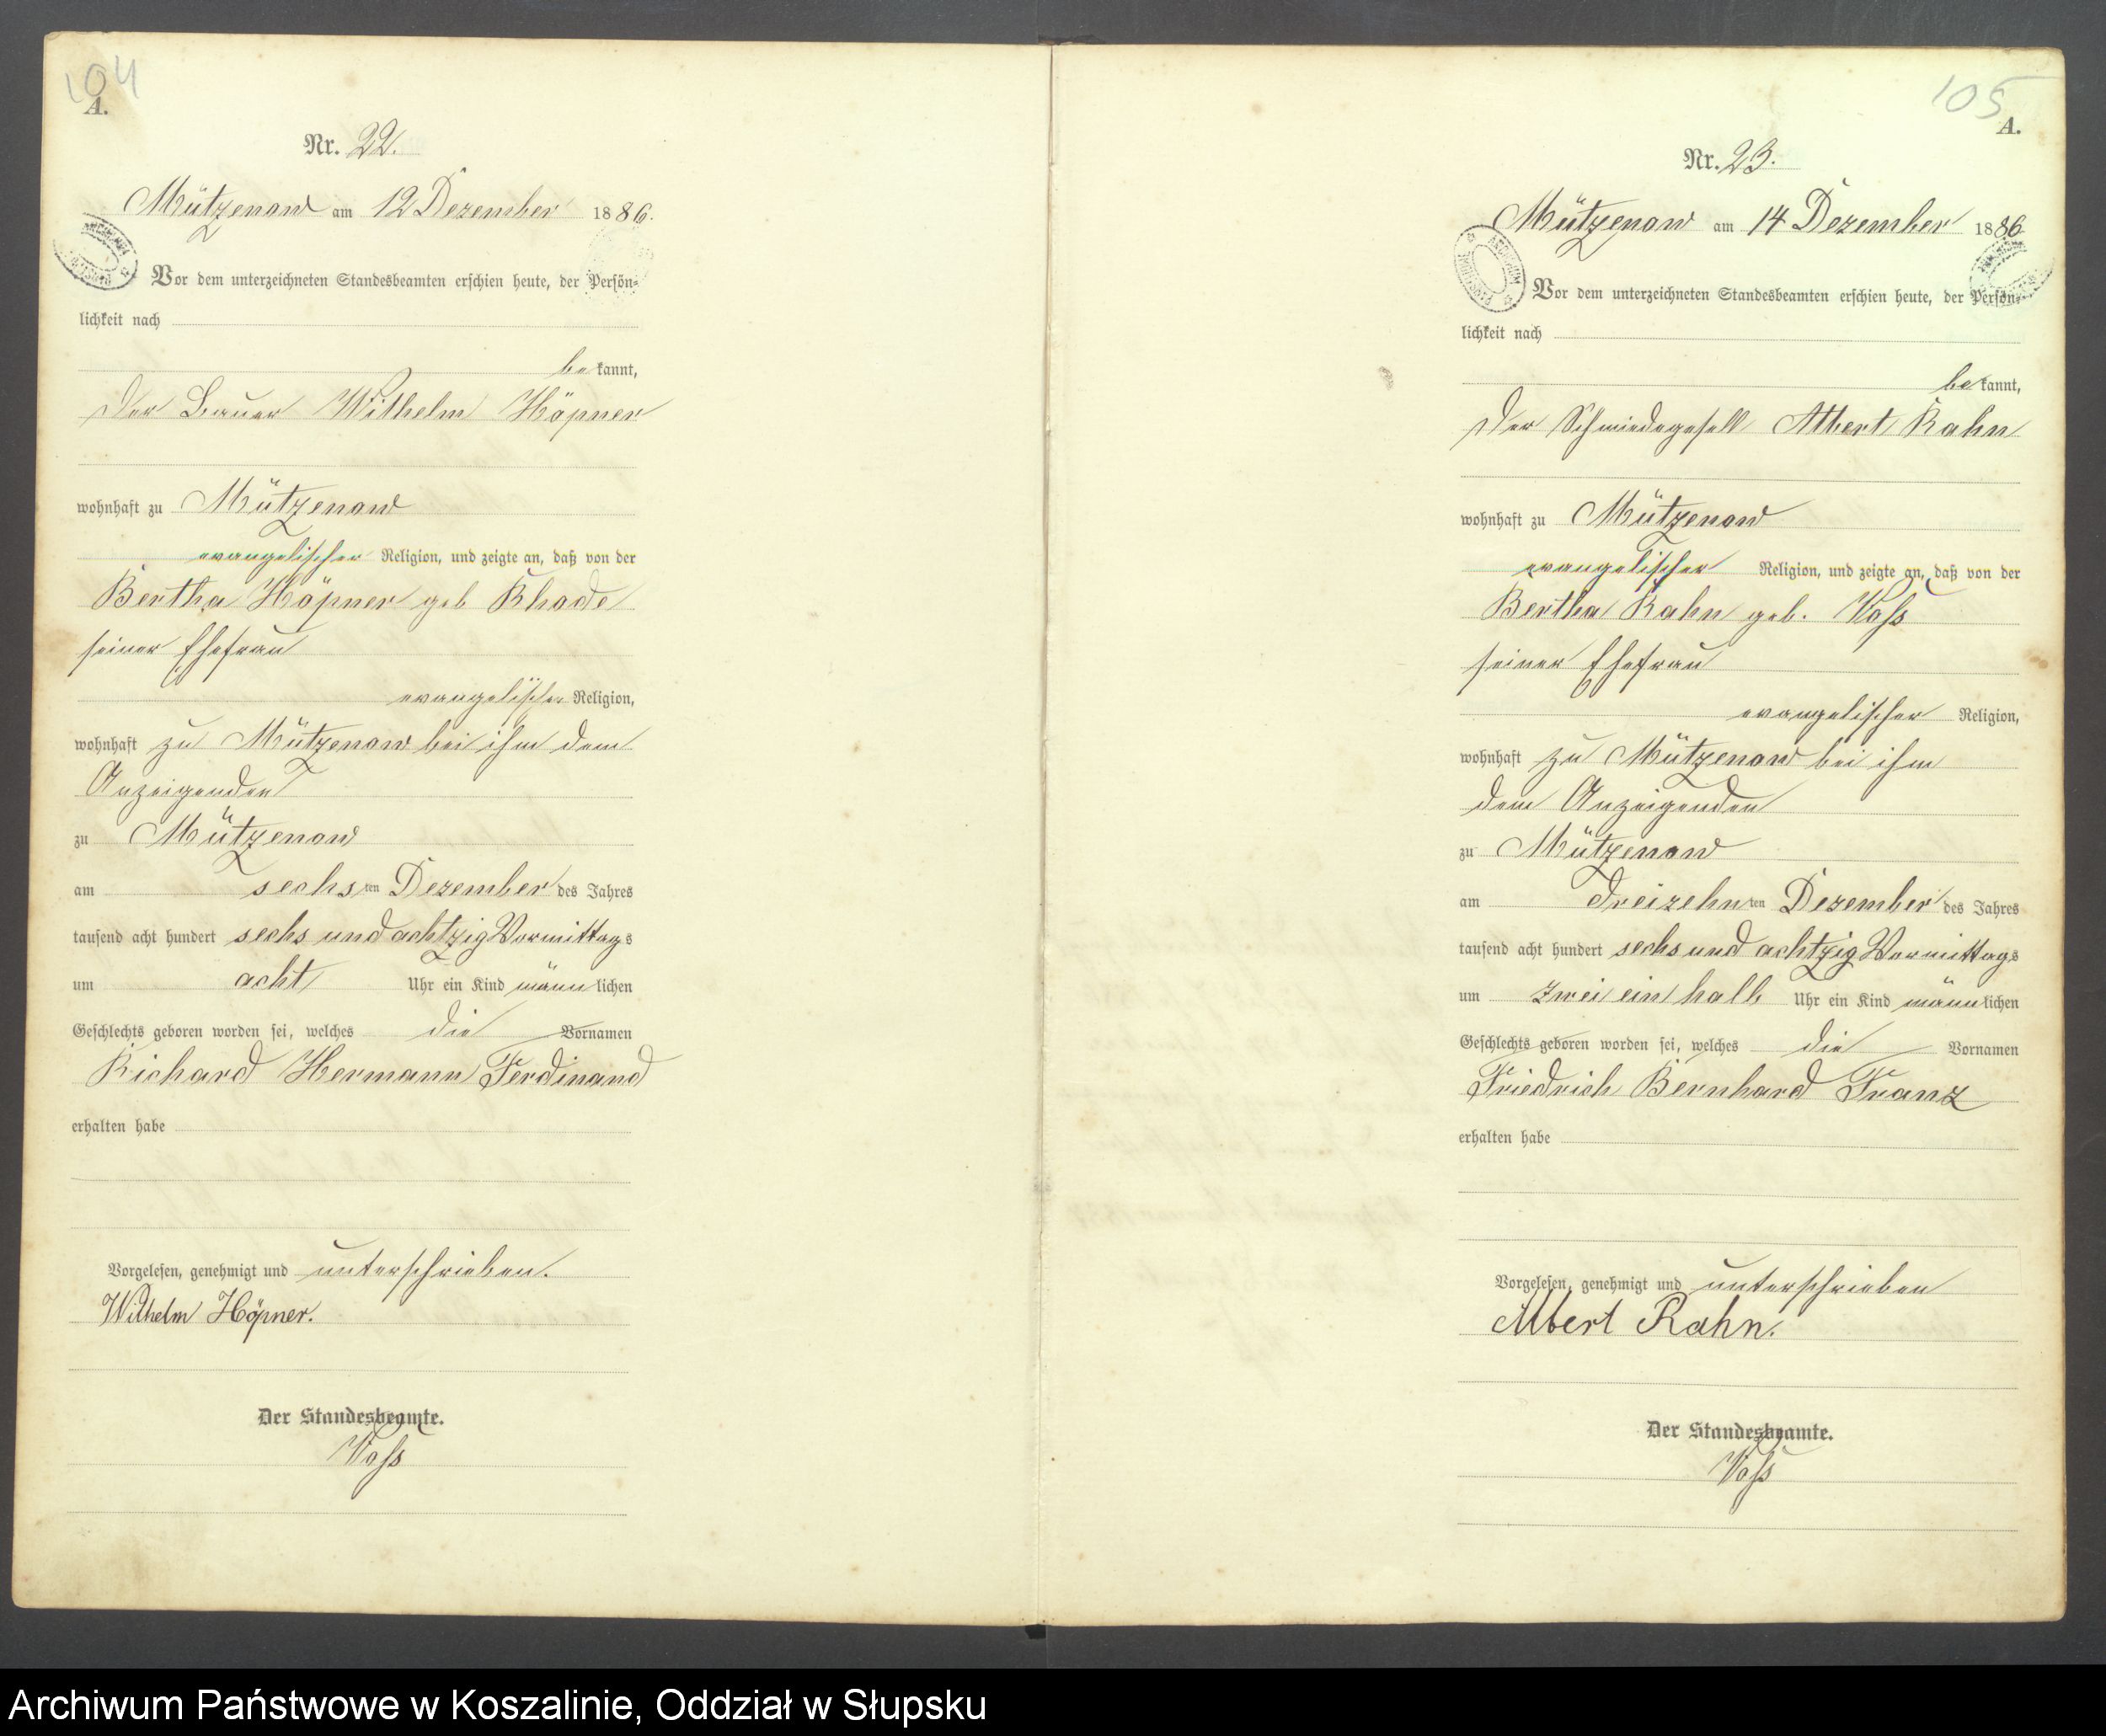 104
A.
Nr. 22.
Mützenow am 12 Dezember 1886.
Vor dem unterzeichneten Standesbeamten erschien heute, der Persön-
lichkeit nach
bekannt,
der Bauer Wilhelm Höpner
wohnhaft zu Mützenow
evangelischer Religion, und zeigte an, daß von der
Bertha Höpner geb Rhode
seiner Ehefrau
evangelischer Religion,
wohnhaft zu Mützenow bei ihm dem
Anzeigenden
zu Mützenow
am sechsten Dezember des Jahres
tausend acht hundert sechs und achtzig Vormittags
um acht Uhr ein Kind männlichen
Geschlechts geboren worden sei, welches die Vornamen
Richard Hermann Ferdinand
erhalten habe
Vorgelesen, genehmigt und unterschrieben.
Wilhelm Höpner.
Der Standesbeamte.
Voß
105
A.
Nr. 23.
Mützenow am 14 Dezember 1886
Vor dem unterzeichneten Standesbeamten erschien heute, der Persön-
lichkeit nach
bekannt,
der Schmiedegesell Albert Rahn
wohnhaft zu Mützenow
evangelischer Religion, und zeigte an, daß von der
Bertha Rahn geb. Voß
seiner Ehefrau
evangelischer Religion,
wohnhaft zu Mützenow bei ihm
dem Anzeigenden
zu Mützenow
am dreizehnten Dezember des Jahres
tausend acht hundert sechs und achtzig Vormittags
um zwei ein halb Uhr ein Kind männlichen
Geschlechts geboren worden sei, welches die Vornamen
Friedrich Bernhard Franz
erhalten habe
Vorgelesen, genehmigt und unterschrieben
Albert Rahn.
Der Standesbeamte.
Voß
Archiwum Państwowe w Koszalinie, Oddział w Słupsku